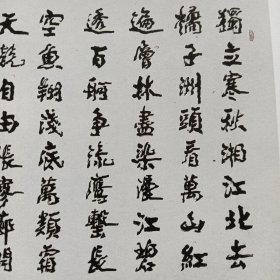 獨立寒秋湘江北去
橘子洲頭看萬山紅
遍層林盡染漫江碧
透百舸爭流鷹擊長
空魚翔淺底萬類霜
天競自由悵寥廓問